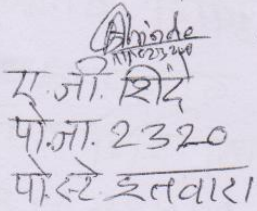 Shinde
ए. जी. शिंदे
पो. ना. 2320
पो. स्टे. इतवारा